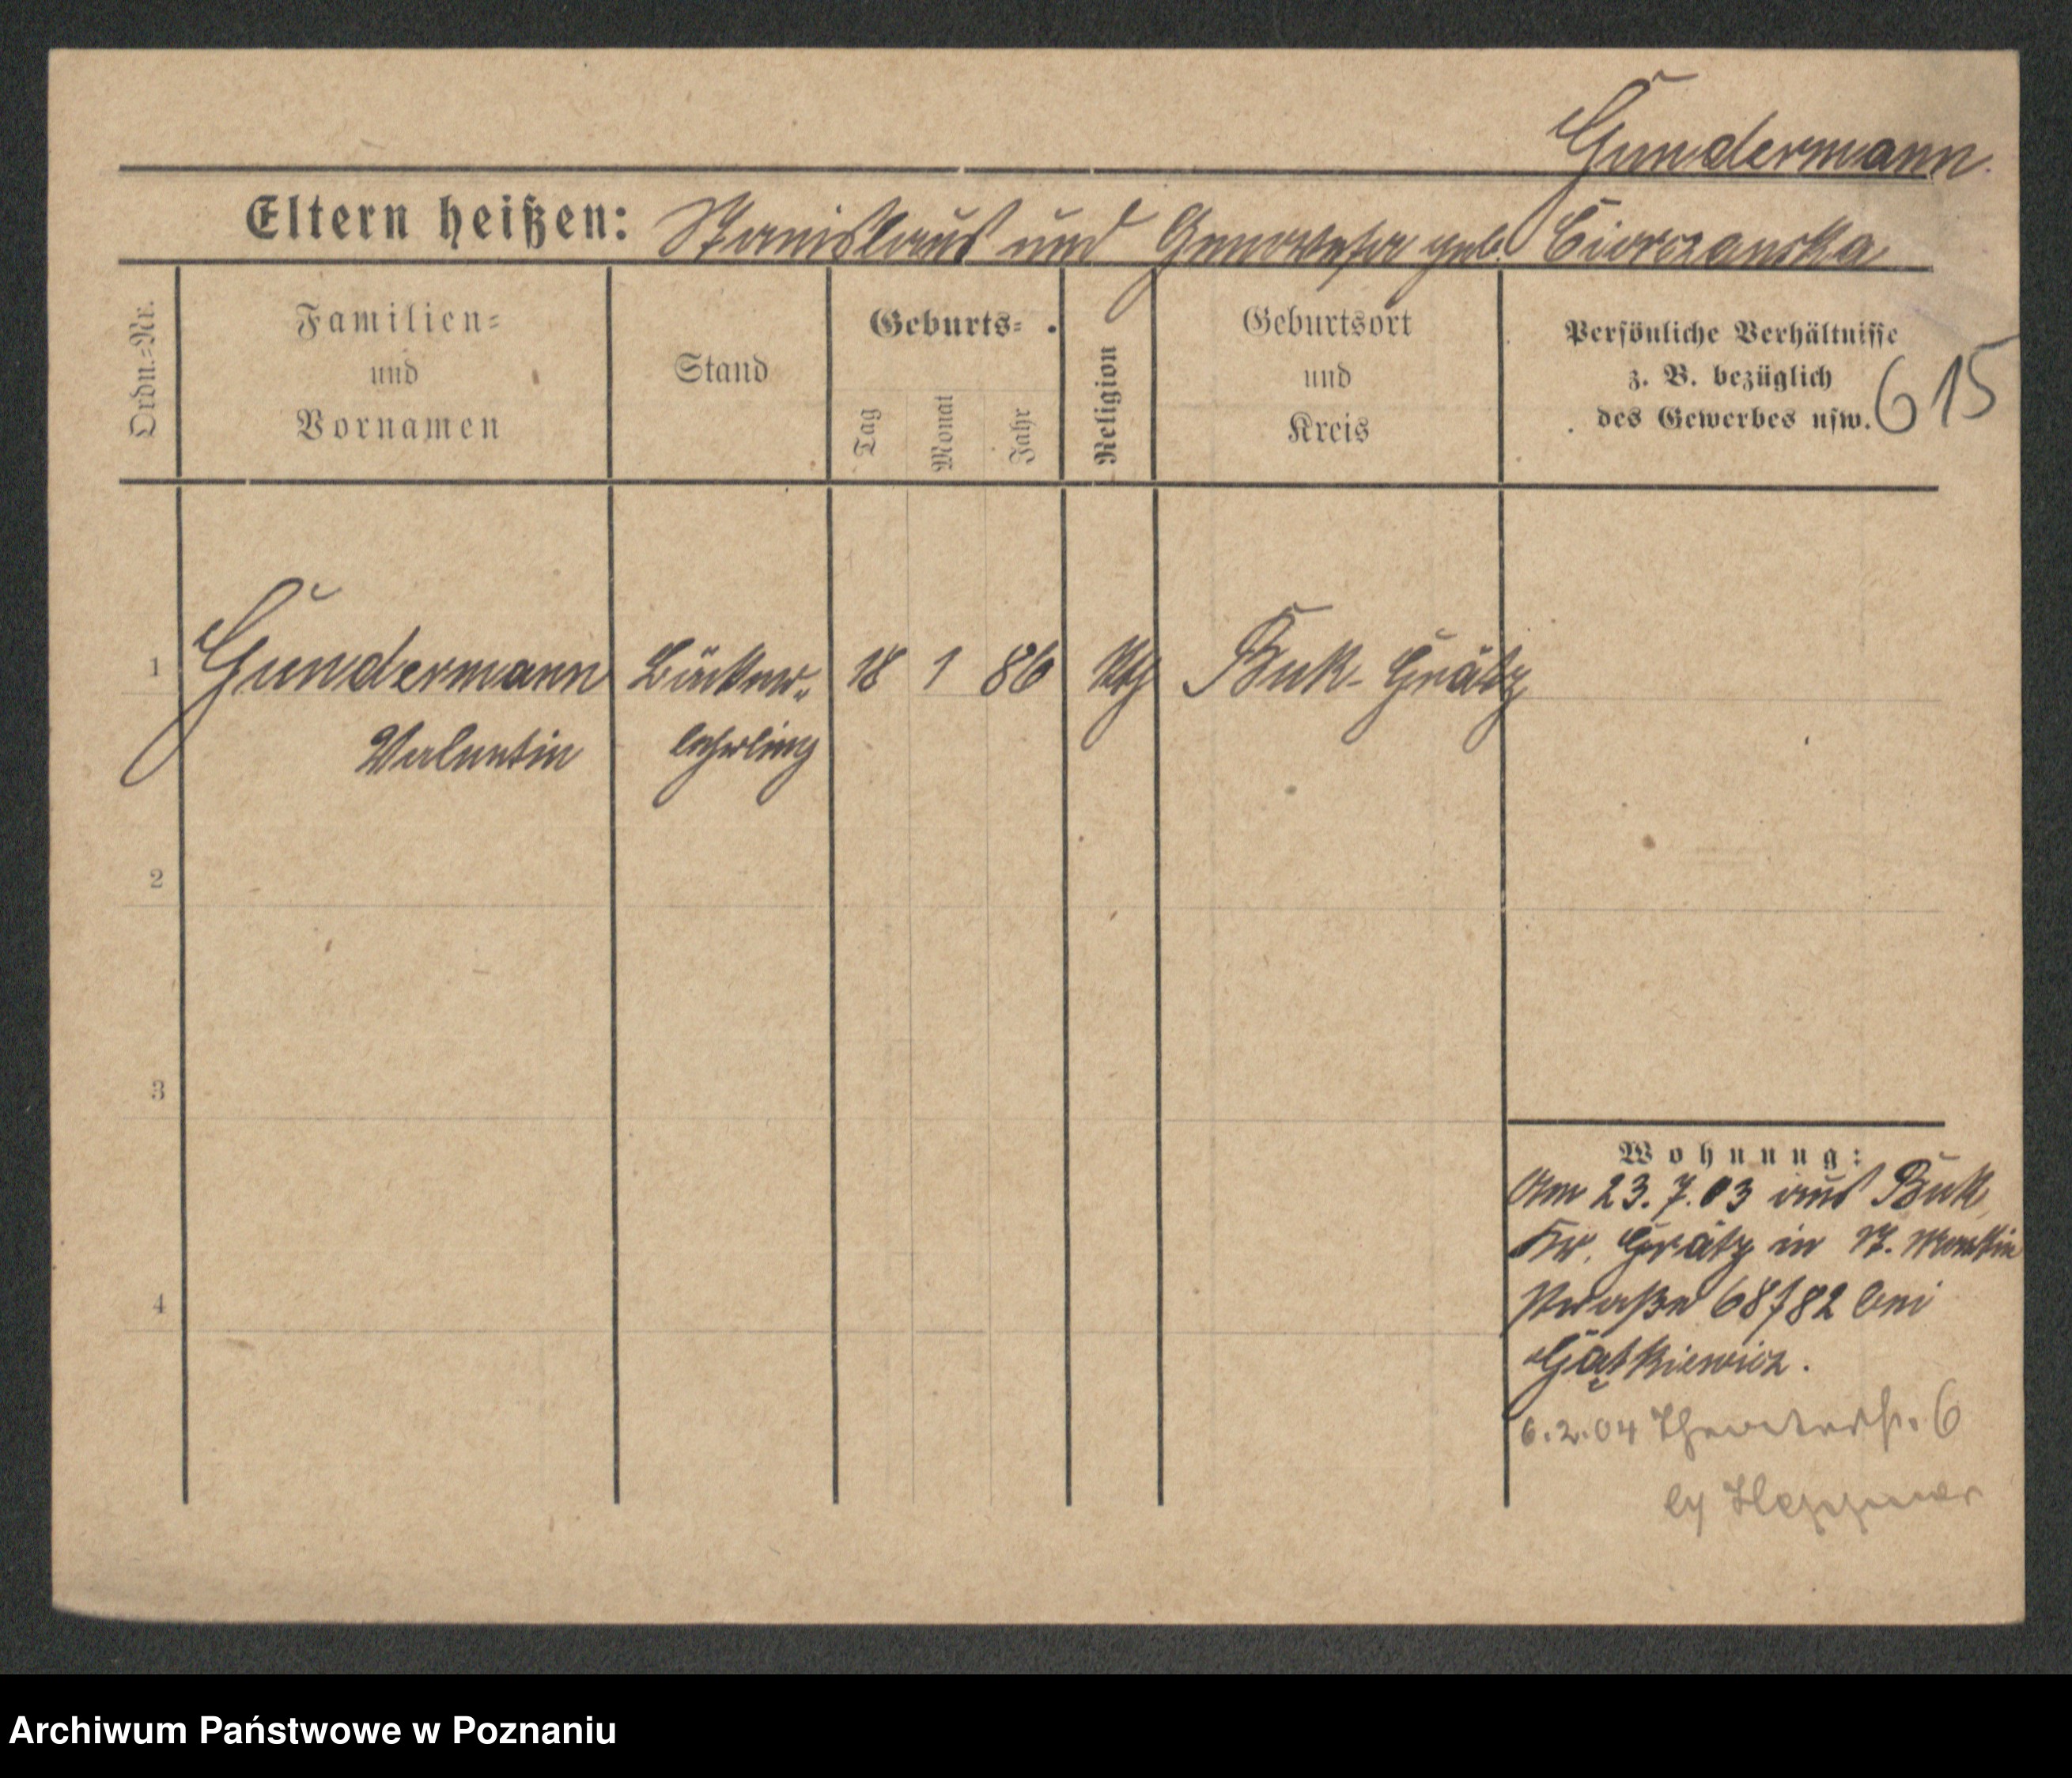 Gundermann.
Eltern heißen: Stanislaus und Genowefa geb. Ciorczanska
Ordn.=Nr.
Familien=
und
Vornamen
Stand
Geburts=
Tag
Monat
Jahr
Religion
Geburtsort
und
Kreis
Persönliche Verhältnisse
z. B. bezüglich
des Gewerbes usw.
615
1 Gundermann Bäcker= 18 1 86 Buk-Grätz
Valentin lehrling
2
3
4
Wohnung:
Am 23.7.03 aus Buk
Kr. Grätz in St. Martin
straße 68/82 bei
6.2.04 Theaterstr. 6
Archiwum Państwowe w Poznaniu